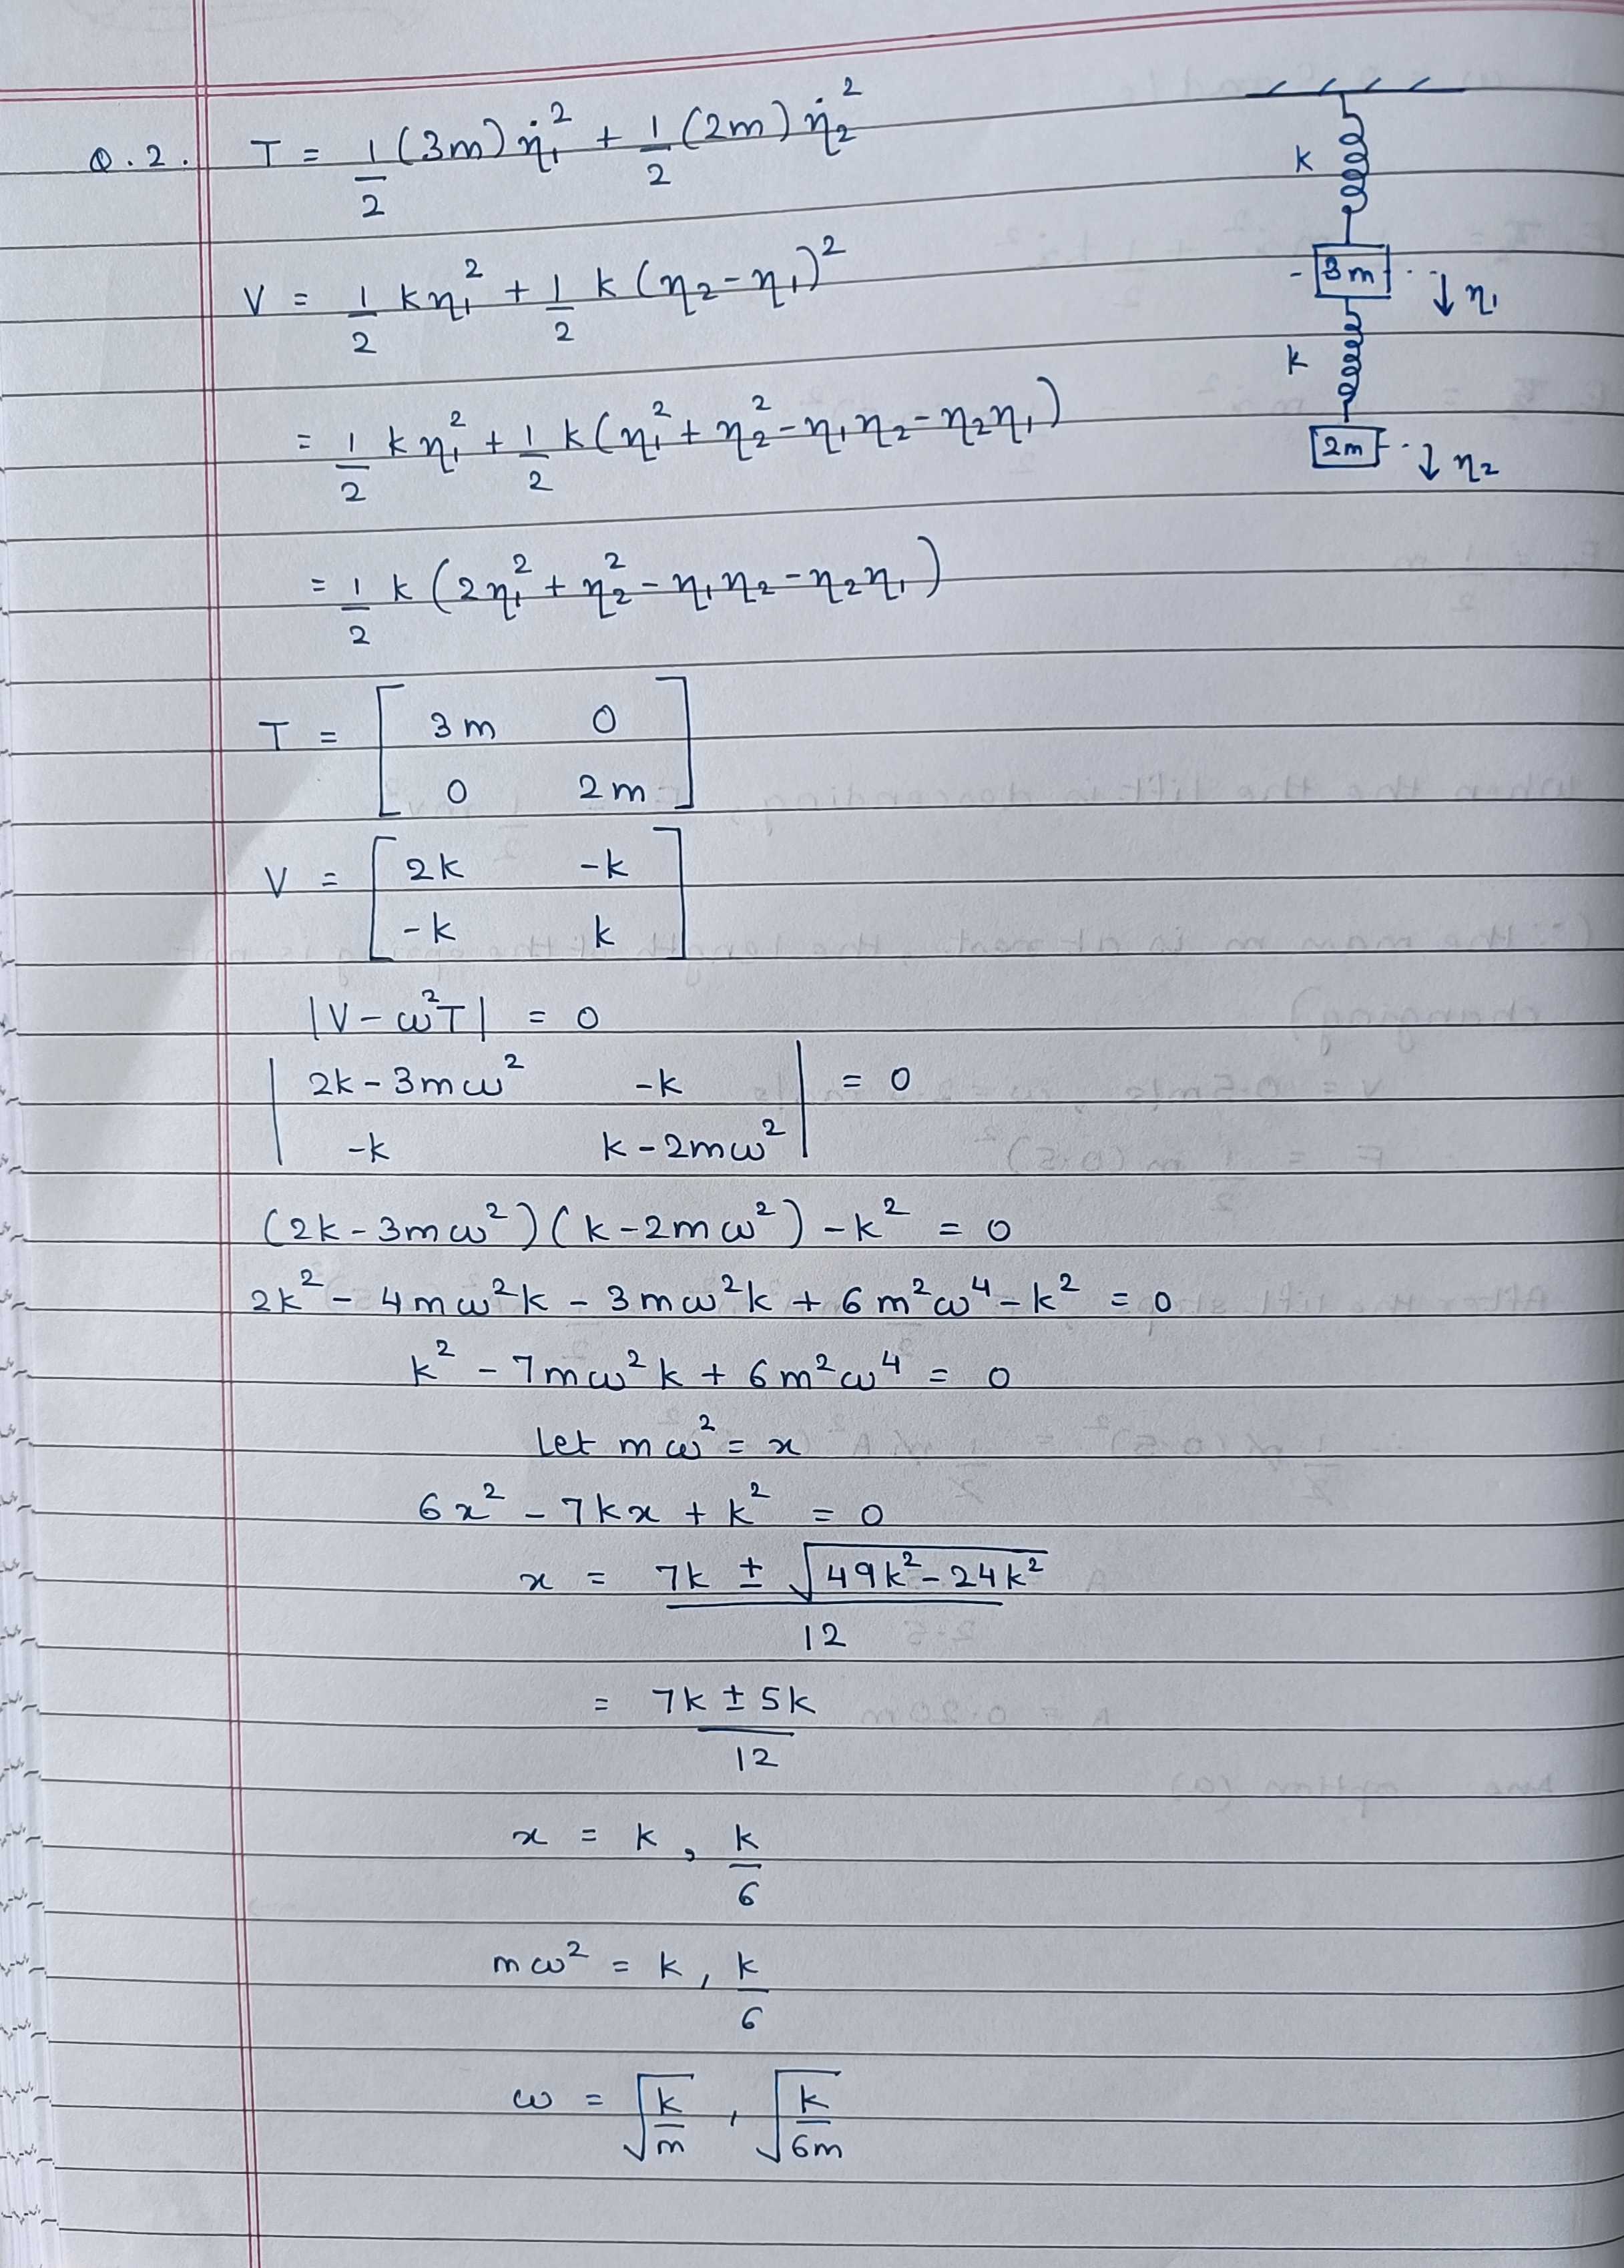 Q.2. T = 1/2 (3m) η̇₁² + 1/2 (2m) η̇₂²
V = 1/2 kη₁² + 1/2 k (η₂-η₁)²
= 1/2 kη₁² + 1/2 k(η₁² + η₂² - η₁η₂ - η₂η₁)
= 1/2 k (2η₁² + η₂² - η₁η₂ - η₂η₁)
k
3m
↓ η₁
k
2m
↓ η₂
T = [ 3m 0
0 2m ]
V = [ 2k -k
-k k ]
|V - ω²T| = 0
| 2k - 3mω² -k | = 0
| -k k - 2mω² |
(2k - 3mω²)(k - 2mω²) - k² = 0
2k² - 4mω²k - 3mω²k + 6m²ω⁴ - k² = 0
k² - 7mω²k + 6m²ω⁴ = 0
Let mω² = x
6x² - 7kx + k² = 0
x = (7k ± √(49k² - 24k²)) / 12
= (7k ± 5k) / 12
x = k, k/6
mω² = k, k/6
ω = √(k/m), √(k/6m)